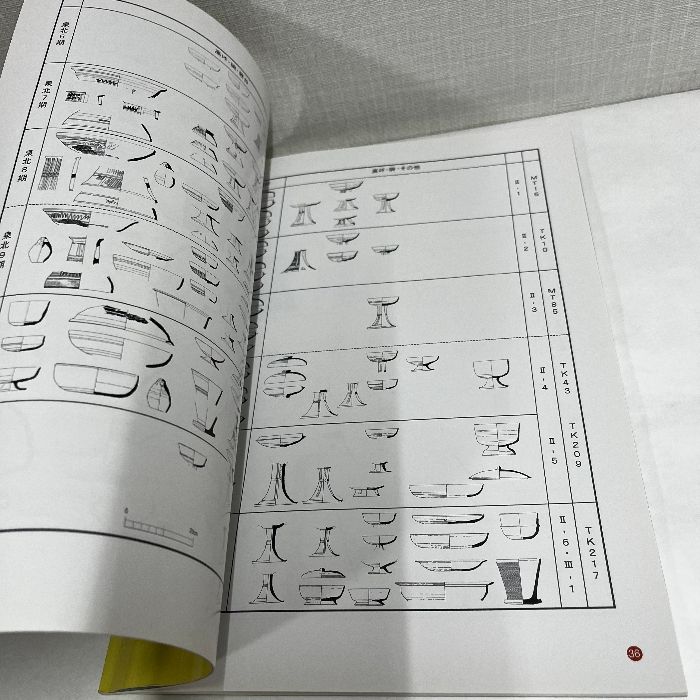 東北6期
東北7期
東北8期
東北9期
高坏・鋺・その他
Ⅱ・1
MT15
Ⅱ・2
TK10
Ⅱ・3
MT85
Ⅱ・4
TK43
Ⅱ・5
TK209
Ⅱ・6・Ⅲ・1
TK217
0
36